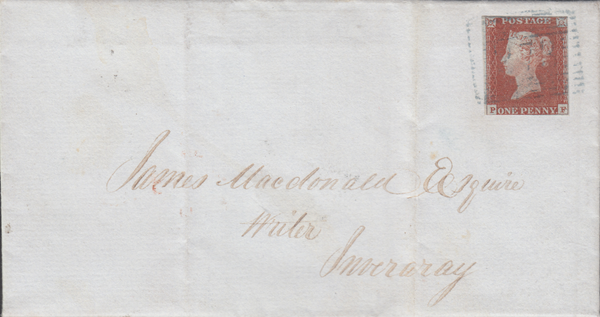 POSTAGE
P ONE PENNY F
James Macdonald Esquire
Writer
Inveraray